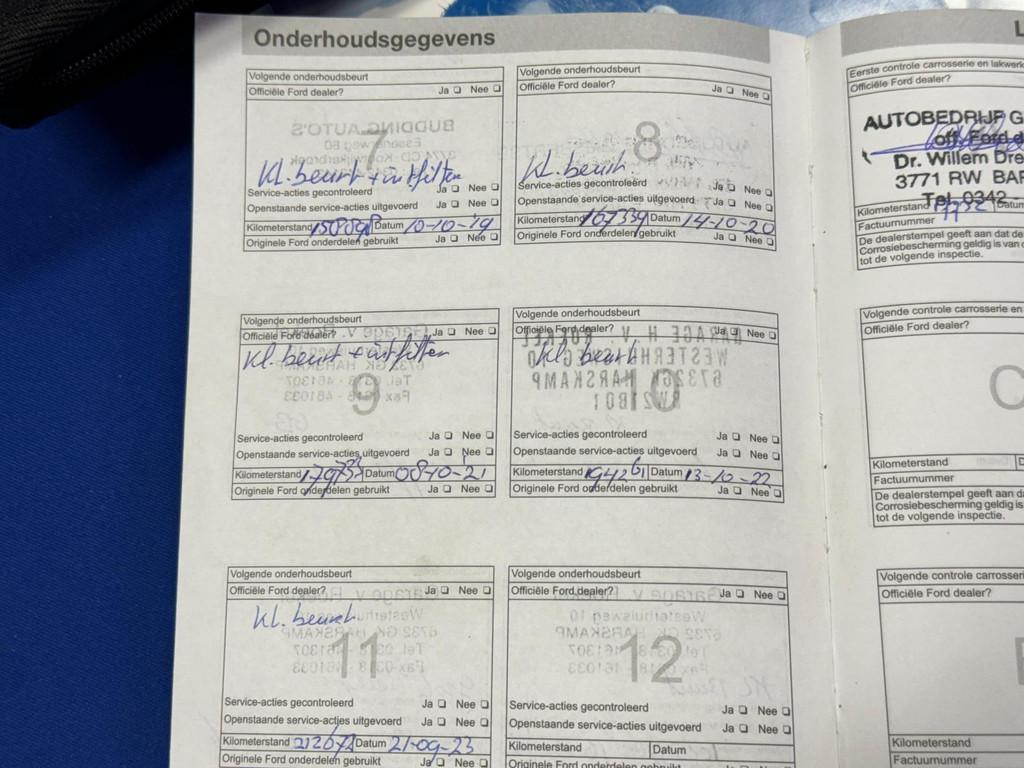 Onderhoudsgegevens
Volgende onderhoudsbeurt
Officiële Ford dealer? Ja ☐ Nee ☐
7
Kl. beurt + intfilter
Service-acties gecontroleerd Ja ☐ Nee ☐
Openstaande service-acties uitgevoerd Ja ☐ Nee ☐
Kilometerstand Datum 10-10-'19
Originele Ford onderdelen gebruikt Ja ☐ Nee ☐
Volgende onderhoudsbeurt
Officiële Ford dealer? Ja ☐ Nee ☐
8
Kl. beurt.
Service-acties gecontroleerd Ja ☐ Nee ☐
Openstaande service-acties uitgevoerd Ja ☐ Nee ☐
Kilometerstand 167339 Datum 14-10-20
Originele Ford onderdelen gebruikt Ja ☐ Nee ☐
Volgende onderhoudsbeurt
Officiële Ford dealer? Ja ☐ Nee ☐
Kl. beurt + intfilter
9
Service-acties gecontroleerd Ja ☐ Nee ☐
Openstaande service-acties uitgevoerd Ja ☐ Nee ☐
Kilometerstand Datum 08-10-21
Originele Ford onderdelen gebruikt Ja ☐ Nee ☐
Volgende onderhoudsbeurt
Officiële Ford dealer? Ja ☐ Nee ☐
Kl. beurt
10
Service-acties gecontroleerd Ja ☐ Nee ☐
Openstaande service-acties uitgevoerd Ja ☐ Nee ☐
Kilometerstand 194261 Datum 13-10-22
Originele Ford onderdelen gebruikt Ja ☐ Nee ☐
Volgende onderhoudsbeurt
Officiële Ford dealer? Ja ☐ Nee ☐
Kl. beurt
11
Service-acties gecontroleerd Ja ☐ Nee ☐
Openstaande service-acties uitgevoerd Ja ☐ Nee ☐
Kilometerstand Datum 21-09-23
Originele Ford onderdelen gebruikt Ja ☐ Nee ☐
Volgende onderhoudsbeurt
Officiële Ford dealer? Ja ☐ Nee ☐
12
Service-acties gecontroleerd Ja ☐ Nee ☐
Openstaande service-acties uitgevoerd Ja ☐ Nee ☐
Kilometerstand Datum
Originele Ford onderdelen gebruikt Ja ☐ Nee ☐
L
Eerste controle carrosserie en lakwerk
AUTOBEDRIJF G
off. Ford d
Dr. Willem Dre
3771 RW BAR
Tel. 0342 -
Kilometerstand Datum
Factuurnummer
De dealerstempel geeft aan dat de
Corrosiebescherming geldig is van d
tot de volgende inspectie.
Volgende controle carrosserie en
Officiële Ford dealer?
C
Kilometerstand D
Factuurnummer
De dealerstempel geeft aan da
Corrosiebescherming geldig is
tot de volgende inspectie.
Volgende controle carrosseri
Officiële Ford dealer?
Kilometerstand
Factuurnummer